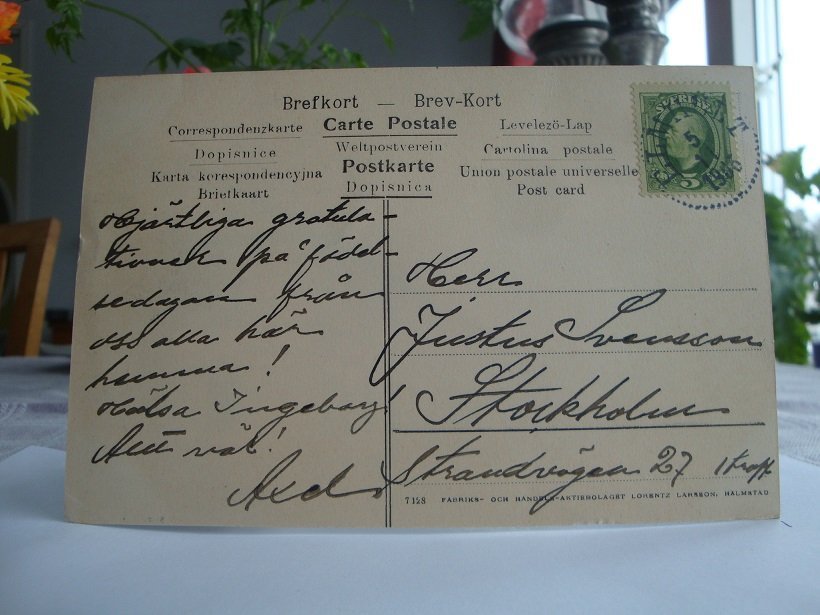 Brefkort — Brev-Kort
Correspondenzkarte Carte Postale Levelezö-Lap
Dopisnice Weltpostverein Cartolina postale
Karta korespondencyjna Postkarte Union postale universelle
Briefkaart Dopisnica Post card
Hjärtliga gratula-
tioner på föd-
sedagen från
oss alla här
hemma!
Hälsa Ingeborg!
Allt väl!
Axel
Herr
Justus Svensson
Stockholm
Strandvägen 27 1 trapp
7128 FABRIKS- OCH HANDELS-AKTIEBOLAGET LORENTZ LARSSON, HALMSTAD
5